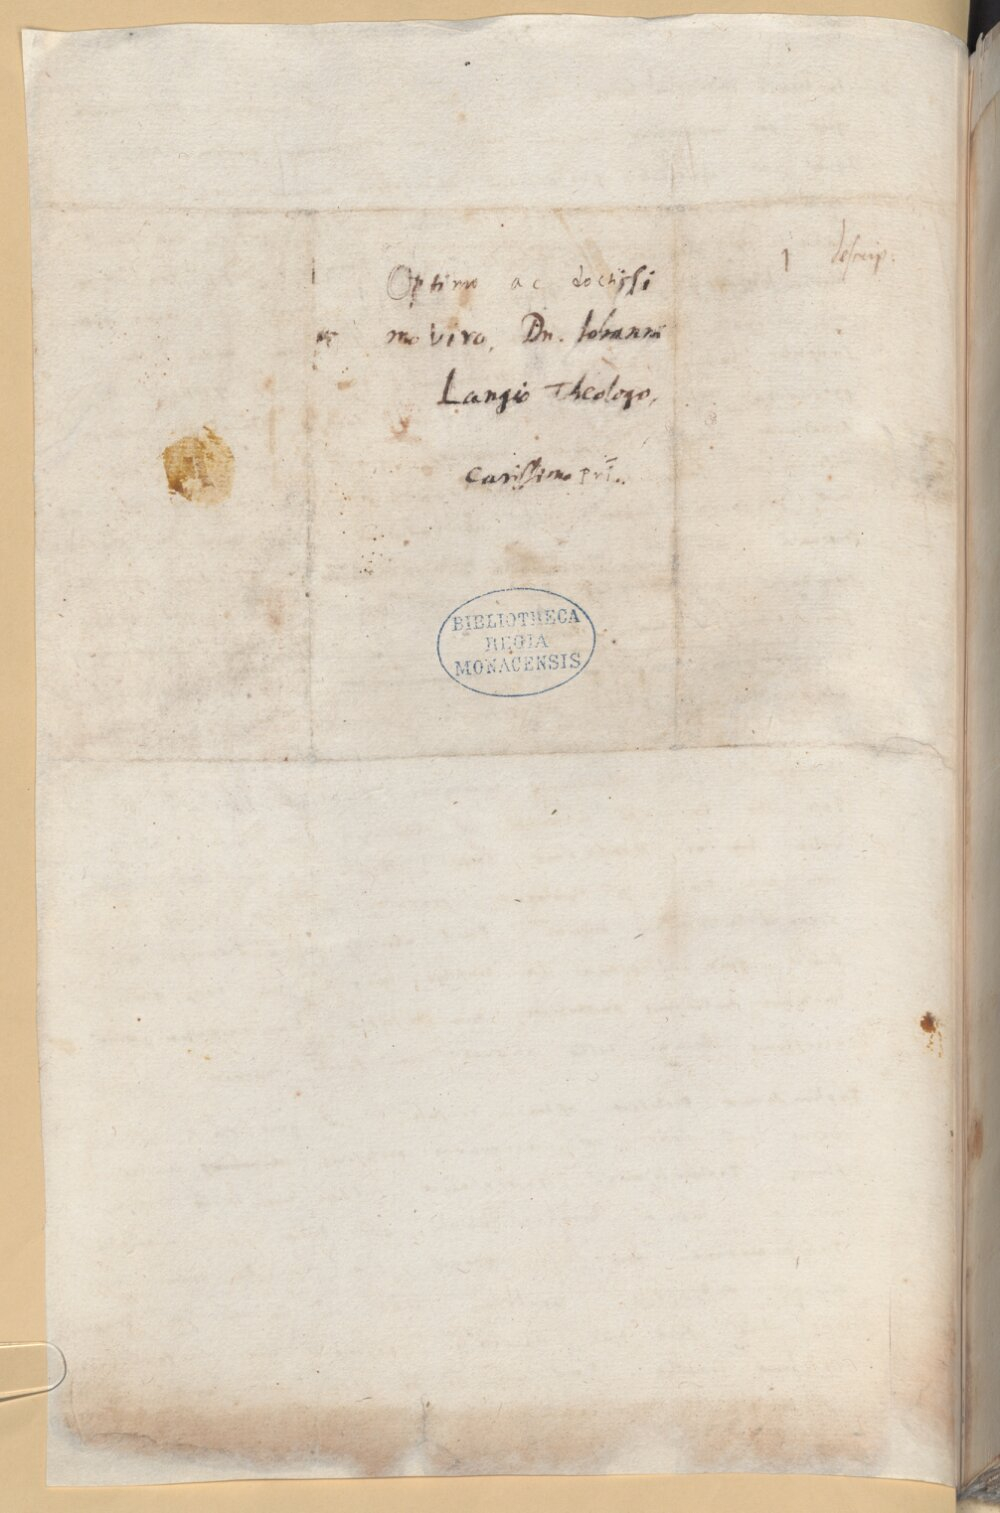 Optimo ac doctissi
mo viro, Dn. Iohanni
Langio Theologo,
carissimo
descrip.
BIBLIOTHECA
REGIA
MONACENSIS